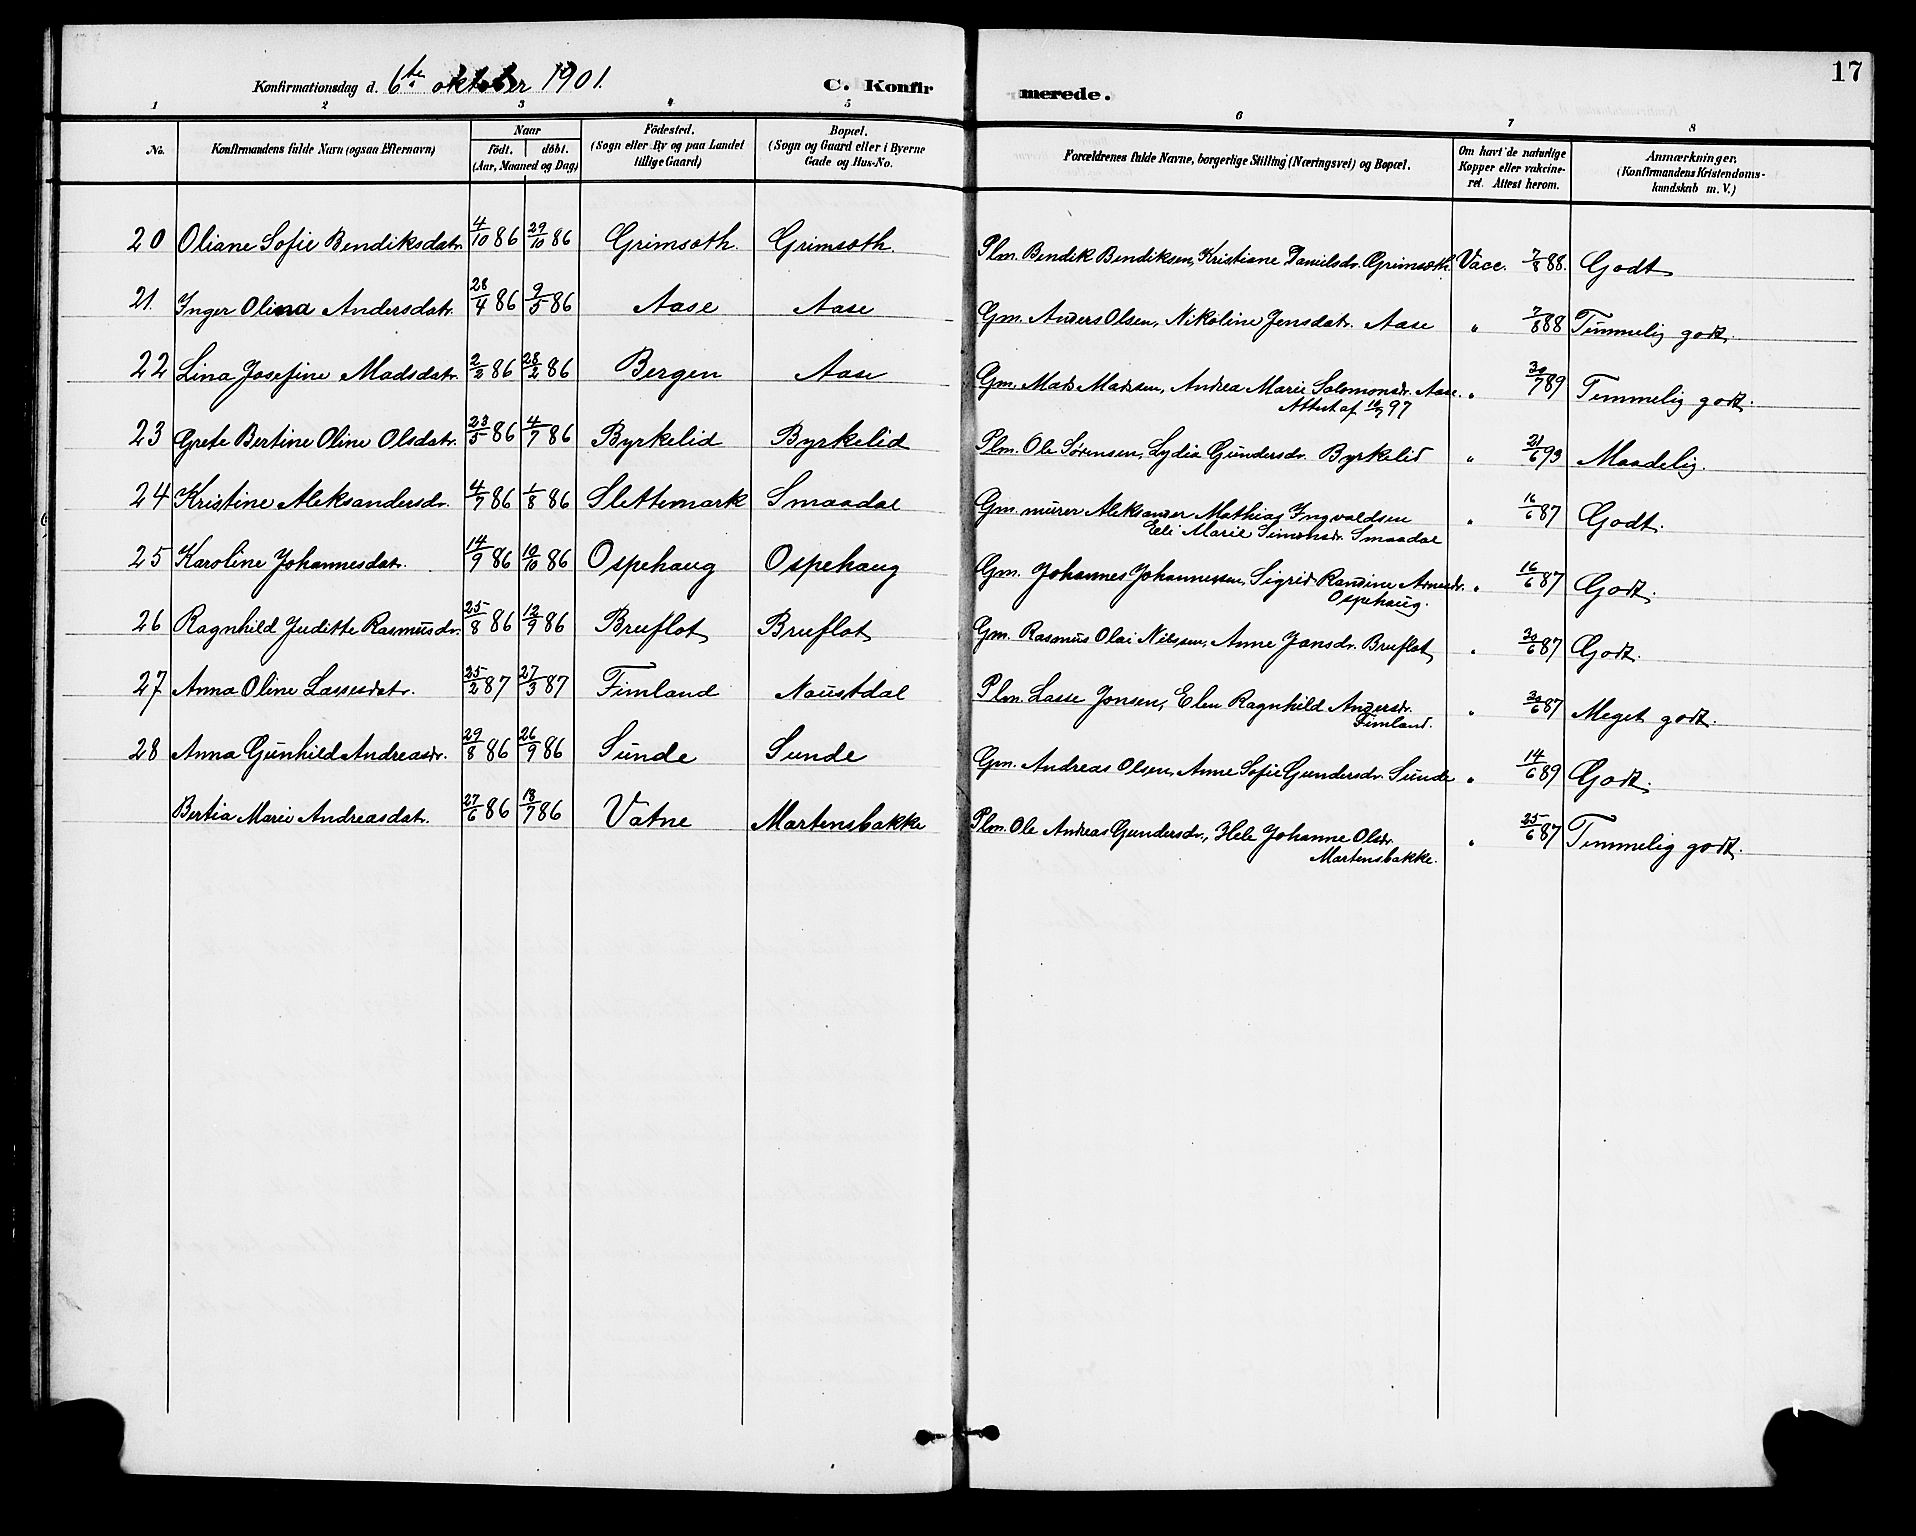 17
Konfirmationsdag d. 6te oktober 1901.
C. Konfirmerede.
1 2 3 4 5 6 7 8
No.
Konfirmandens fulde Navn (ogsaa Efternavn)
Naar
födt. döbt.
(Aar, Maaned og Dag)
Födested.
(Sogn eller By og paa Landet
tillige Gaard)
Bopæl.
(Sogn og Gaard eller i Byerne
Gade og Hus-No.
Forældrenes fulde Navne, borgerlige Stilling (Næringsvei) og Bopæl.
Om havt de naturlige
Kopper eller vakcine-
ret. Attest herom.
Anmærkninger.
(Konfirmandens Kristendoms-
kundskab m. V.)
20 Oliane Sofie Bendiksdatr. 4/10 86 29/10 86 Grimsöth. Grimsöth. Plm. Bendik Bendiksen, Kristiane Danielsdr. Grimsöth. Vacc. 7/8 88. Godt
21. Inger Olina Andersdatr. 28/4 86 9/5 86 Aase Aase Gm. Anders Olsen, Nikoline Jensdatr. Aase " 7/8 88 Temmelig godt.
22 Lina Josefine Madsdatr. 2/2 86 28/2 86 Bergen Aase Gm. Mads Madsen, Andrea Marie Salomonsdr. Aase. " 30/7 89 Temmelig godt.
Attest af 97
23 Grete Bertine Oline Olsdatr. 23/5 86 4/7 86 Byrkelid Byrkelid Plm. Ole Sørensen, Lydia Gundersdr. Byrkelid " 21/6 93 Maadelig.
24 Kristine Aleksandersdr. 4/7 86 1/8 86 Slettemark Smaadal Gm. murer Aleksander Mathias Ingvaldsen " 16/6 87 Godt.
Eli Marie Simonsdr. Smaadal
25 Karoline Johannesdatr. 14/9 86 10/10 86 Ospehaug Ospehaug Gm. Johannes Johannessen, Sigrid Randine Arnesdr. " 16/6 87 Godt.
Ospehaug.
26 Ragnhild Juditte Rasmusdr. 25/8 86 12/9 86 Bruflot Bruflot Gm. Rasmus Olai Nilssen, Anne Jansdr. Bruflot " 30/6 87 Godt.
27 Anna Oline Lassesdatr. 25/2 87 27/3 87 Fimland Naustdal Plm. Lasse Jonsen, Elen Ragnhild Andersdr. " 30/6 87 Meget godt.
Fimland.
28 Anna Gunhild Andreasdr. 29/8 86 26/9 86 Sunde Sunde Gm. Andreas Olsen, Anne Sofie Gundersdr. Sunde " 14/6 89 Godt.
Bertia Marie Andreasdatr. 27/6 86 18/7 86 Vatne Martensbakke Plm. Ole Andreas Gundersdr., Hele Johanne Olsdr. " 25/6 87 Temmelig godt.
Martensbakke.